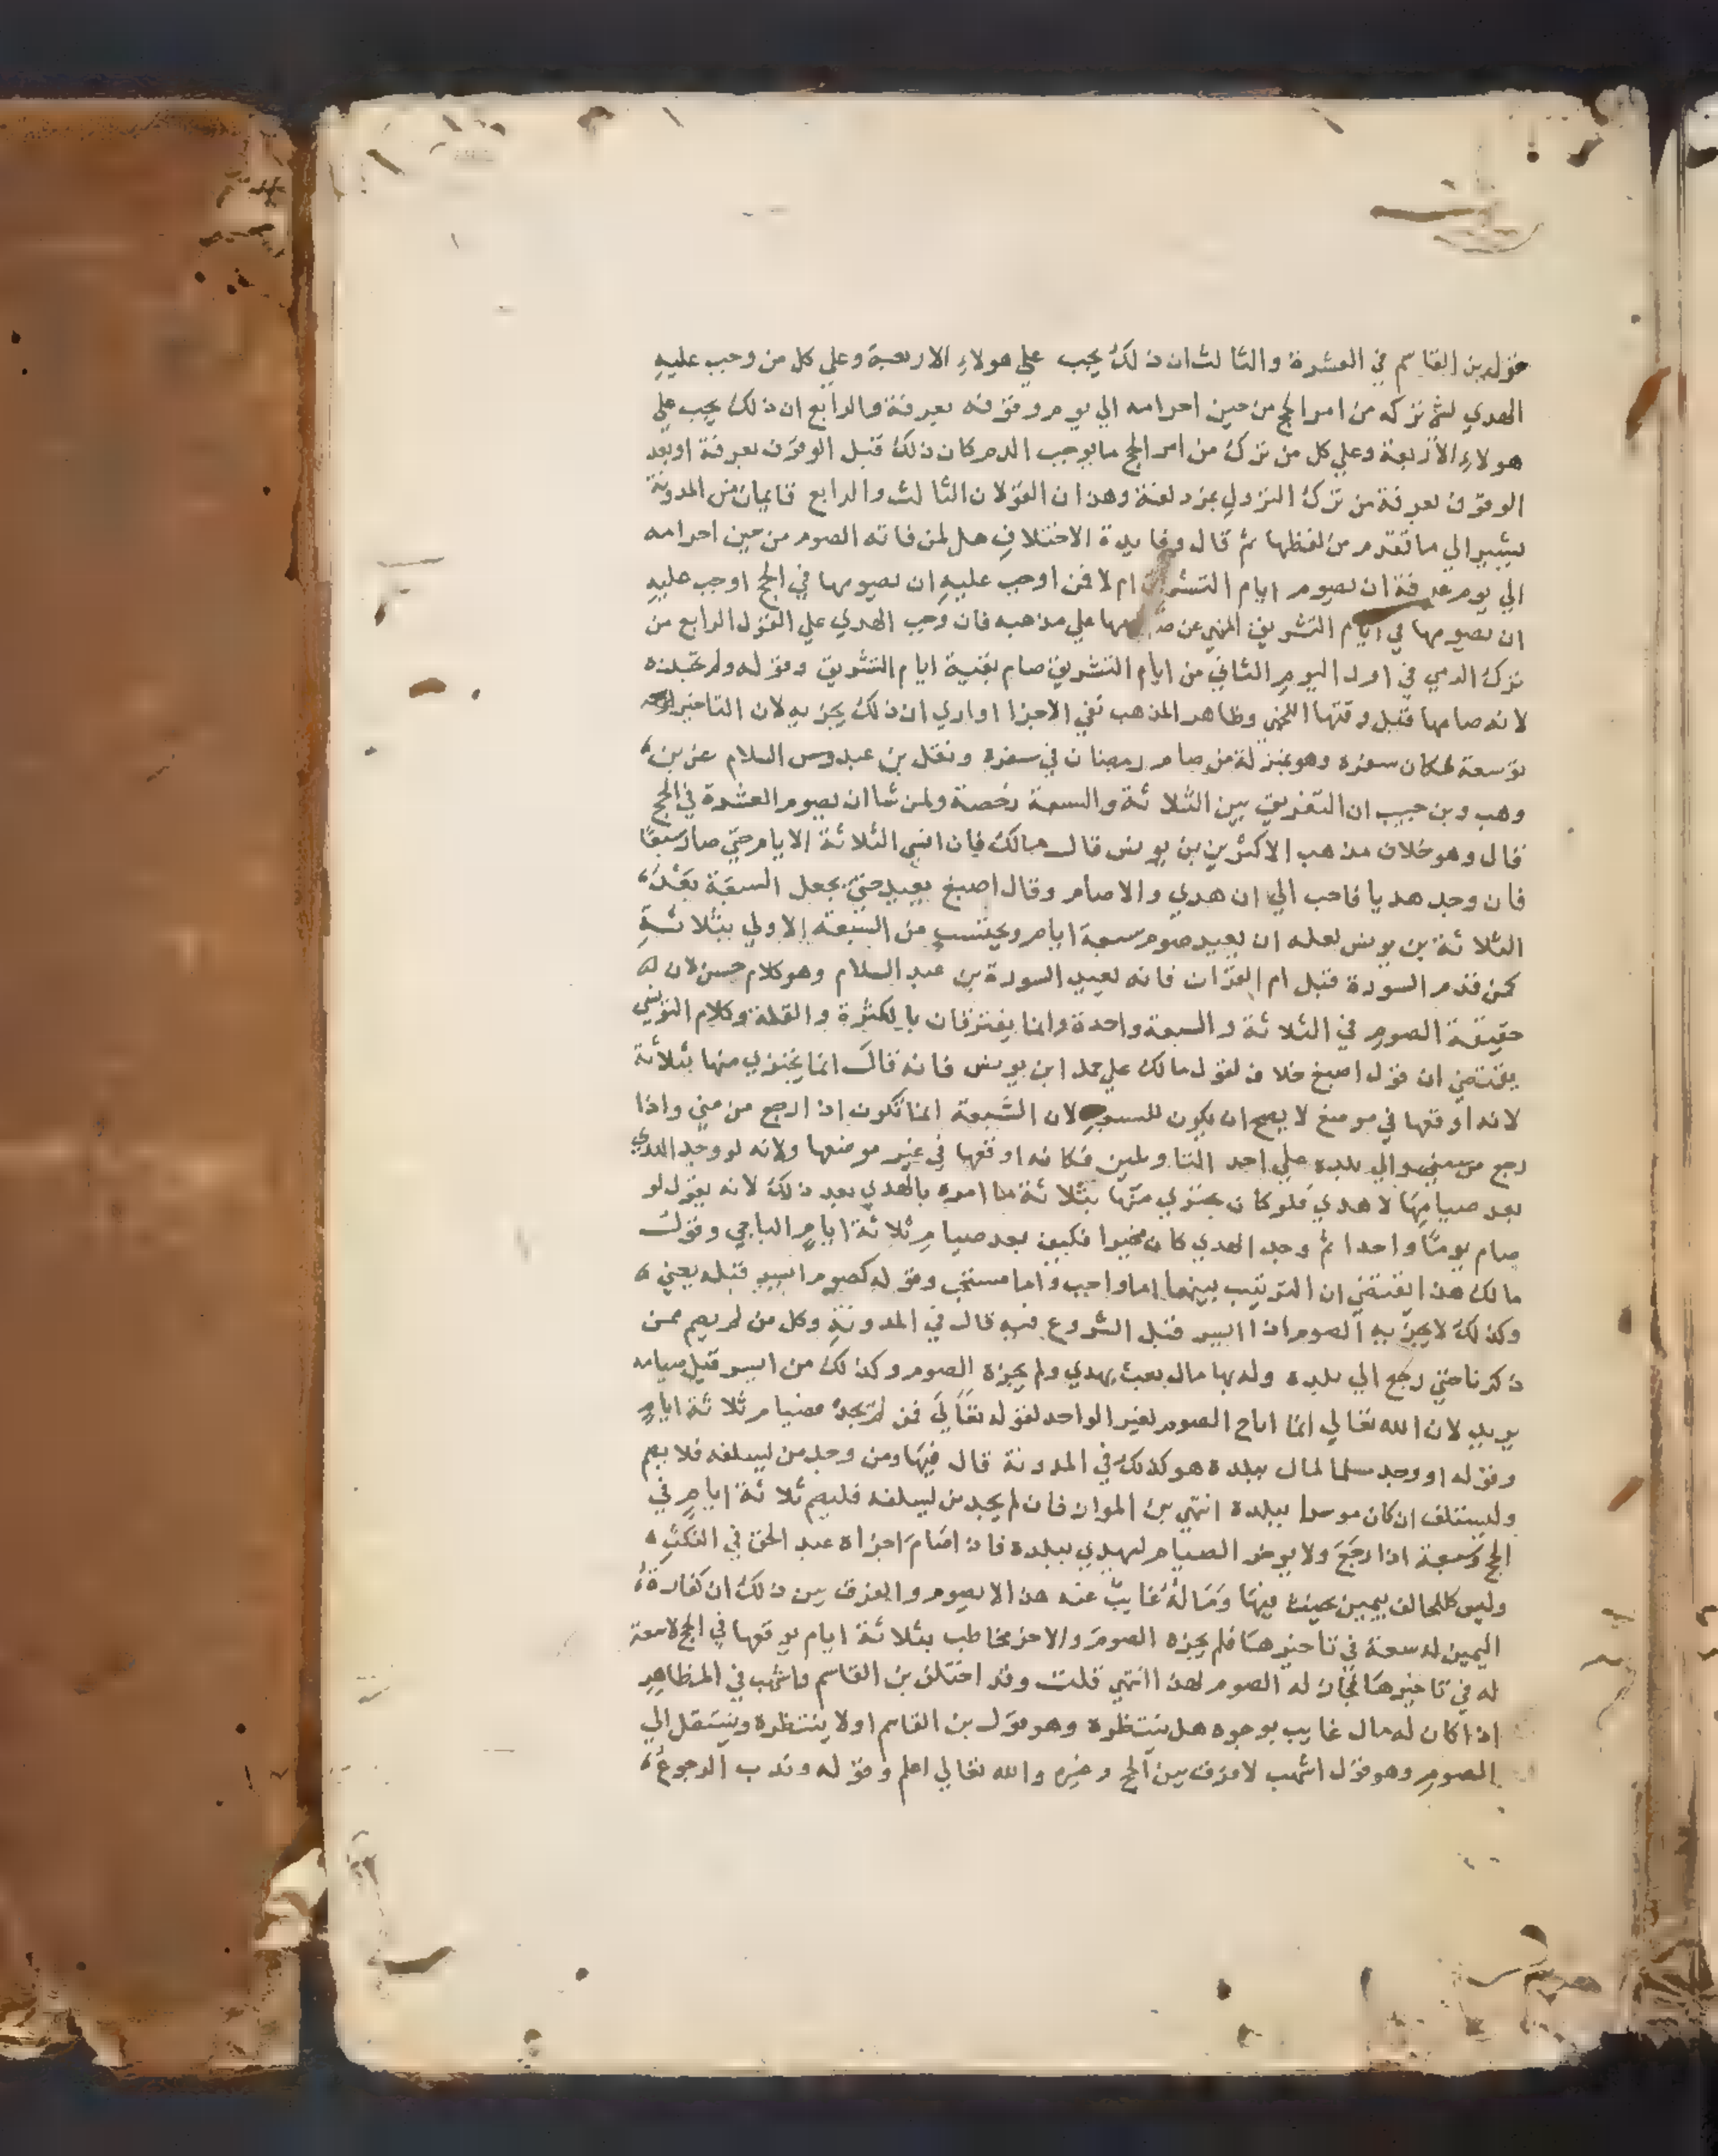 قول بن القاسم في العشرة والثالث ان ذلك يجب علي هولاء الاربعة وعلي كل من وجب عليه
الهدي لشي تركه من امر الحج من حين احرامه الي يوم وقوفه بعرفة والرابع ان ذلك يجب علي
هولاء الاربعة وعلي كل من ترك من امر الحج ما يوجب الدم كان ذلك قبل الوقوف بعرفة او بعد
الوقوف بعرفة من ترك النزول بمزدلفة وهذان القولان الثالث والرابع قايمان من المدونة
يشير الي ما تقدم من لفظها ثم قال وفايدة الاختلاف هل لمن فاته الصوم من حين احرامه
الي يوم عرفة ان يصوم ايام التشريق ام لا فمن اوجب عليه ان يصومها في الحج اوجب عليه
ان يصومها في ايام التشريق المنهي عن صيامها علي مذهبه فان وجب الهدي علي القول الرابع من
ترك الرمي في اول اليوم الثاني من ايام التشريق صام بقية ايام التشريق وقوله ولم تجزه
لانه صامها قبل وقتها اللخمي وظاهر المذهب نفي الاجزا واري ان ذلك يجزيه لان التاخير
توسعة لمكان سفره وهو بمنزلة من صام رمضان في سفره ونقل بن عبدوس السلام عن بن
وهب وبن حبيب ان التفريق بين الثلاثة والسبعة رخصة ولمن شا ان يصوم العشرة في الحج
قال وهو خلاف مذهب الاكثرين بن يونس قال مالك فان نسي الثلاثة الايام حتي صام سبعا
فان وجد هديا فاحب الي ان هدي والا صام وقال اصبغ يعيد حتي يجعل السبعة بعد
الثلاثة بن يونس لعله ان يعيد صوم سبعة ايام ويحتسب من السبعة الاولي بثلاثة
كمن قدم السورة قبل ام القران فانه يعيد السورة بن عبد السلام وهو كلام حسن لان له
حقيقة الصوم في الثلاثة والسبعة واحدة وانما يفترقان بالكثرة والقلة وكلام التونسي
يقتضي ان قول اصبغ خلاف لقول مالك علي حمل ابن يونس فانه قال انما يجتزي منها بثلاثة
لانه اوقعها في موضع لا يصح ان يكون للسبع لان السبعة انما تكون اذا رجع من مني واذا
رجع من مني والي بلده علي احد التاويلين فكانه اوقعها في غير موضعها ولانه لو وجد الهدي
بعد صيامها لا هدي فلو كان يجتزي منها بثلاثة ما امره بالهدي بعد ذلك لانه يقول لو
صام يوما واحدا ثم وجد الهدي كان مخيرا فكيف بعد صيام ثلاثة ايام الباجي وقول
مالك هذا يقتضي ان الترتيب بينهما اما واجب واما مستحب وقوله كصوم ايسر قبله يعني
وكذلك لا يجزيه الصوم اذا ايسر قبل الشروع فيه قال في المدونة وكل من لم يصم ممن
ذكرنا حتي رجع الي بلده وله بها مال بعث بهدي ولم يجزه الصوم وكذلك من ايسر قبل صيامه
يريد لان الله تعالي انما اباح الصوم لغير الواجد لقوله تعالي فمن لم يجد فصيام ثلاثة ايام
وقوله او وجد مسلفا لمال ببلده هو كذلك في المدونة قال فيها ومن وجد من يسلفه فلا يصم
وليستلف ان كان موسرا ببلده انتهي بن المواز فان لم يجد من يسلفه فليصم ثلاثة ايام في
الحج وسبعة اذا رجع ولا يوخر الصيام ليهدي ببلده فاذا صام اجزاه عبد الحق في النكت
وليس كالحالف بيمين حنث فيها وماله غايب عنه هذا لا يصوم والفرق بين ذلك ان كفارة
اليمين له سعة في تاخيرها فلم يجزه الصوم والاخر مخاطب بثلاثة ايام يوقعها في الحج لا سعة
له في تاخيرها فجاز له الصوم لهذا انتهي قلت وقد اختلف بن القاسم واشهب في المظاهر
اذا كان له مال غايب يرجوه هل ينتظره وهو قول بن القاسم او لا ينتظره وينتقل الي
الصوم وهو قول اشهب لا فرق بين الحج وغيره والله تعالي اعلم وقوله وندب الرجوع